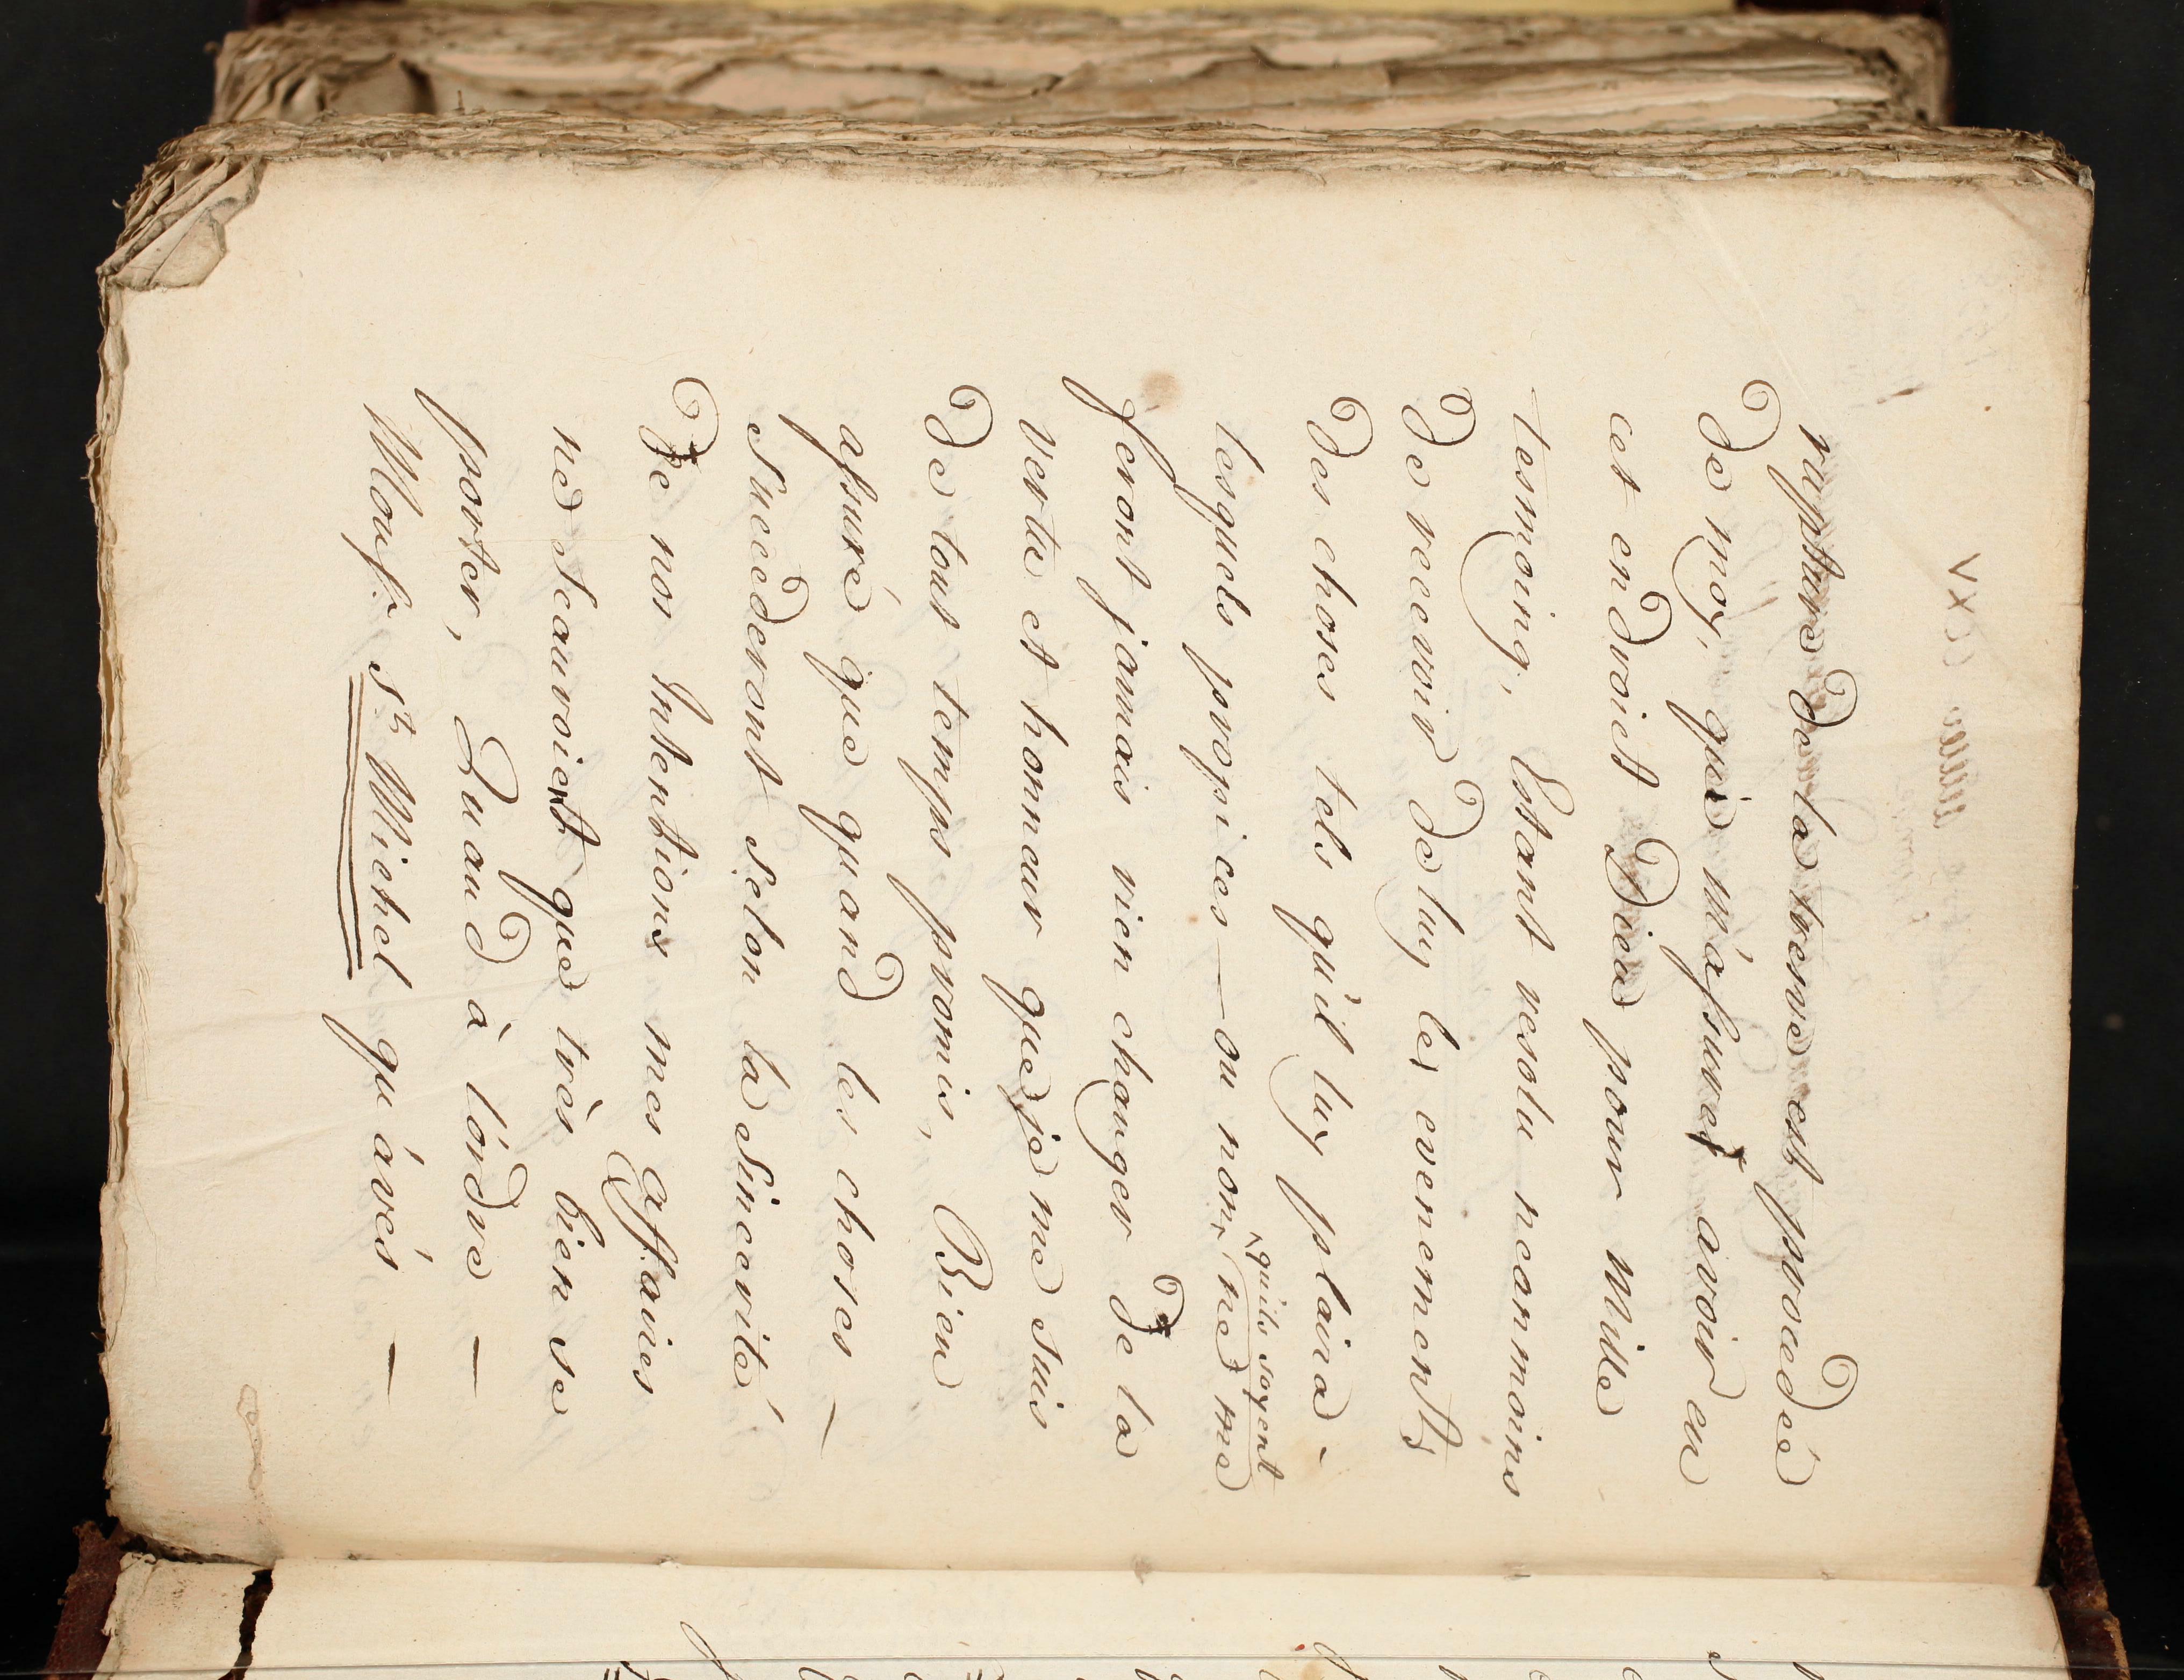 rupture de la tresve est procedée
de moy, que m'assurer avoir en
cet endroict Dieu pour mille
tesmoing, Estant resolu neanmoins
de recevoir de luy les evenements
des choses tels qu'il luy plaira -
lesquels propices — ou non ne me
^ quils soyent
feront jamais rien changer de la
vertu et honneur que je me suis
de tout temps promis, Bien
assuré que quand les choses —
succederont selon la sincerité
de nos Intentions mes affaires
ne scauroient que très bien se
porter, Quand à lórdre —
Monsr. St. Michel qu'avés —